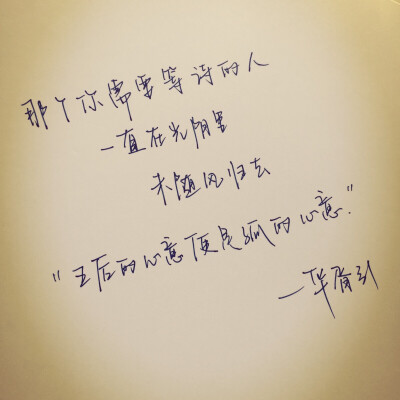 那个你需要等诗的人
一直在光阴里
未随风归去
"王后的心意便是孤的心意."
—华胥引